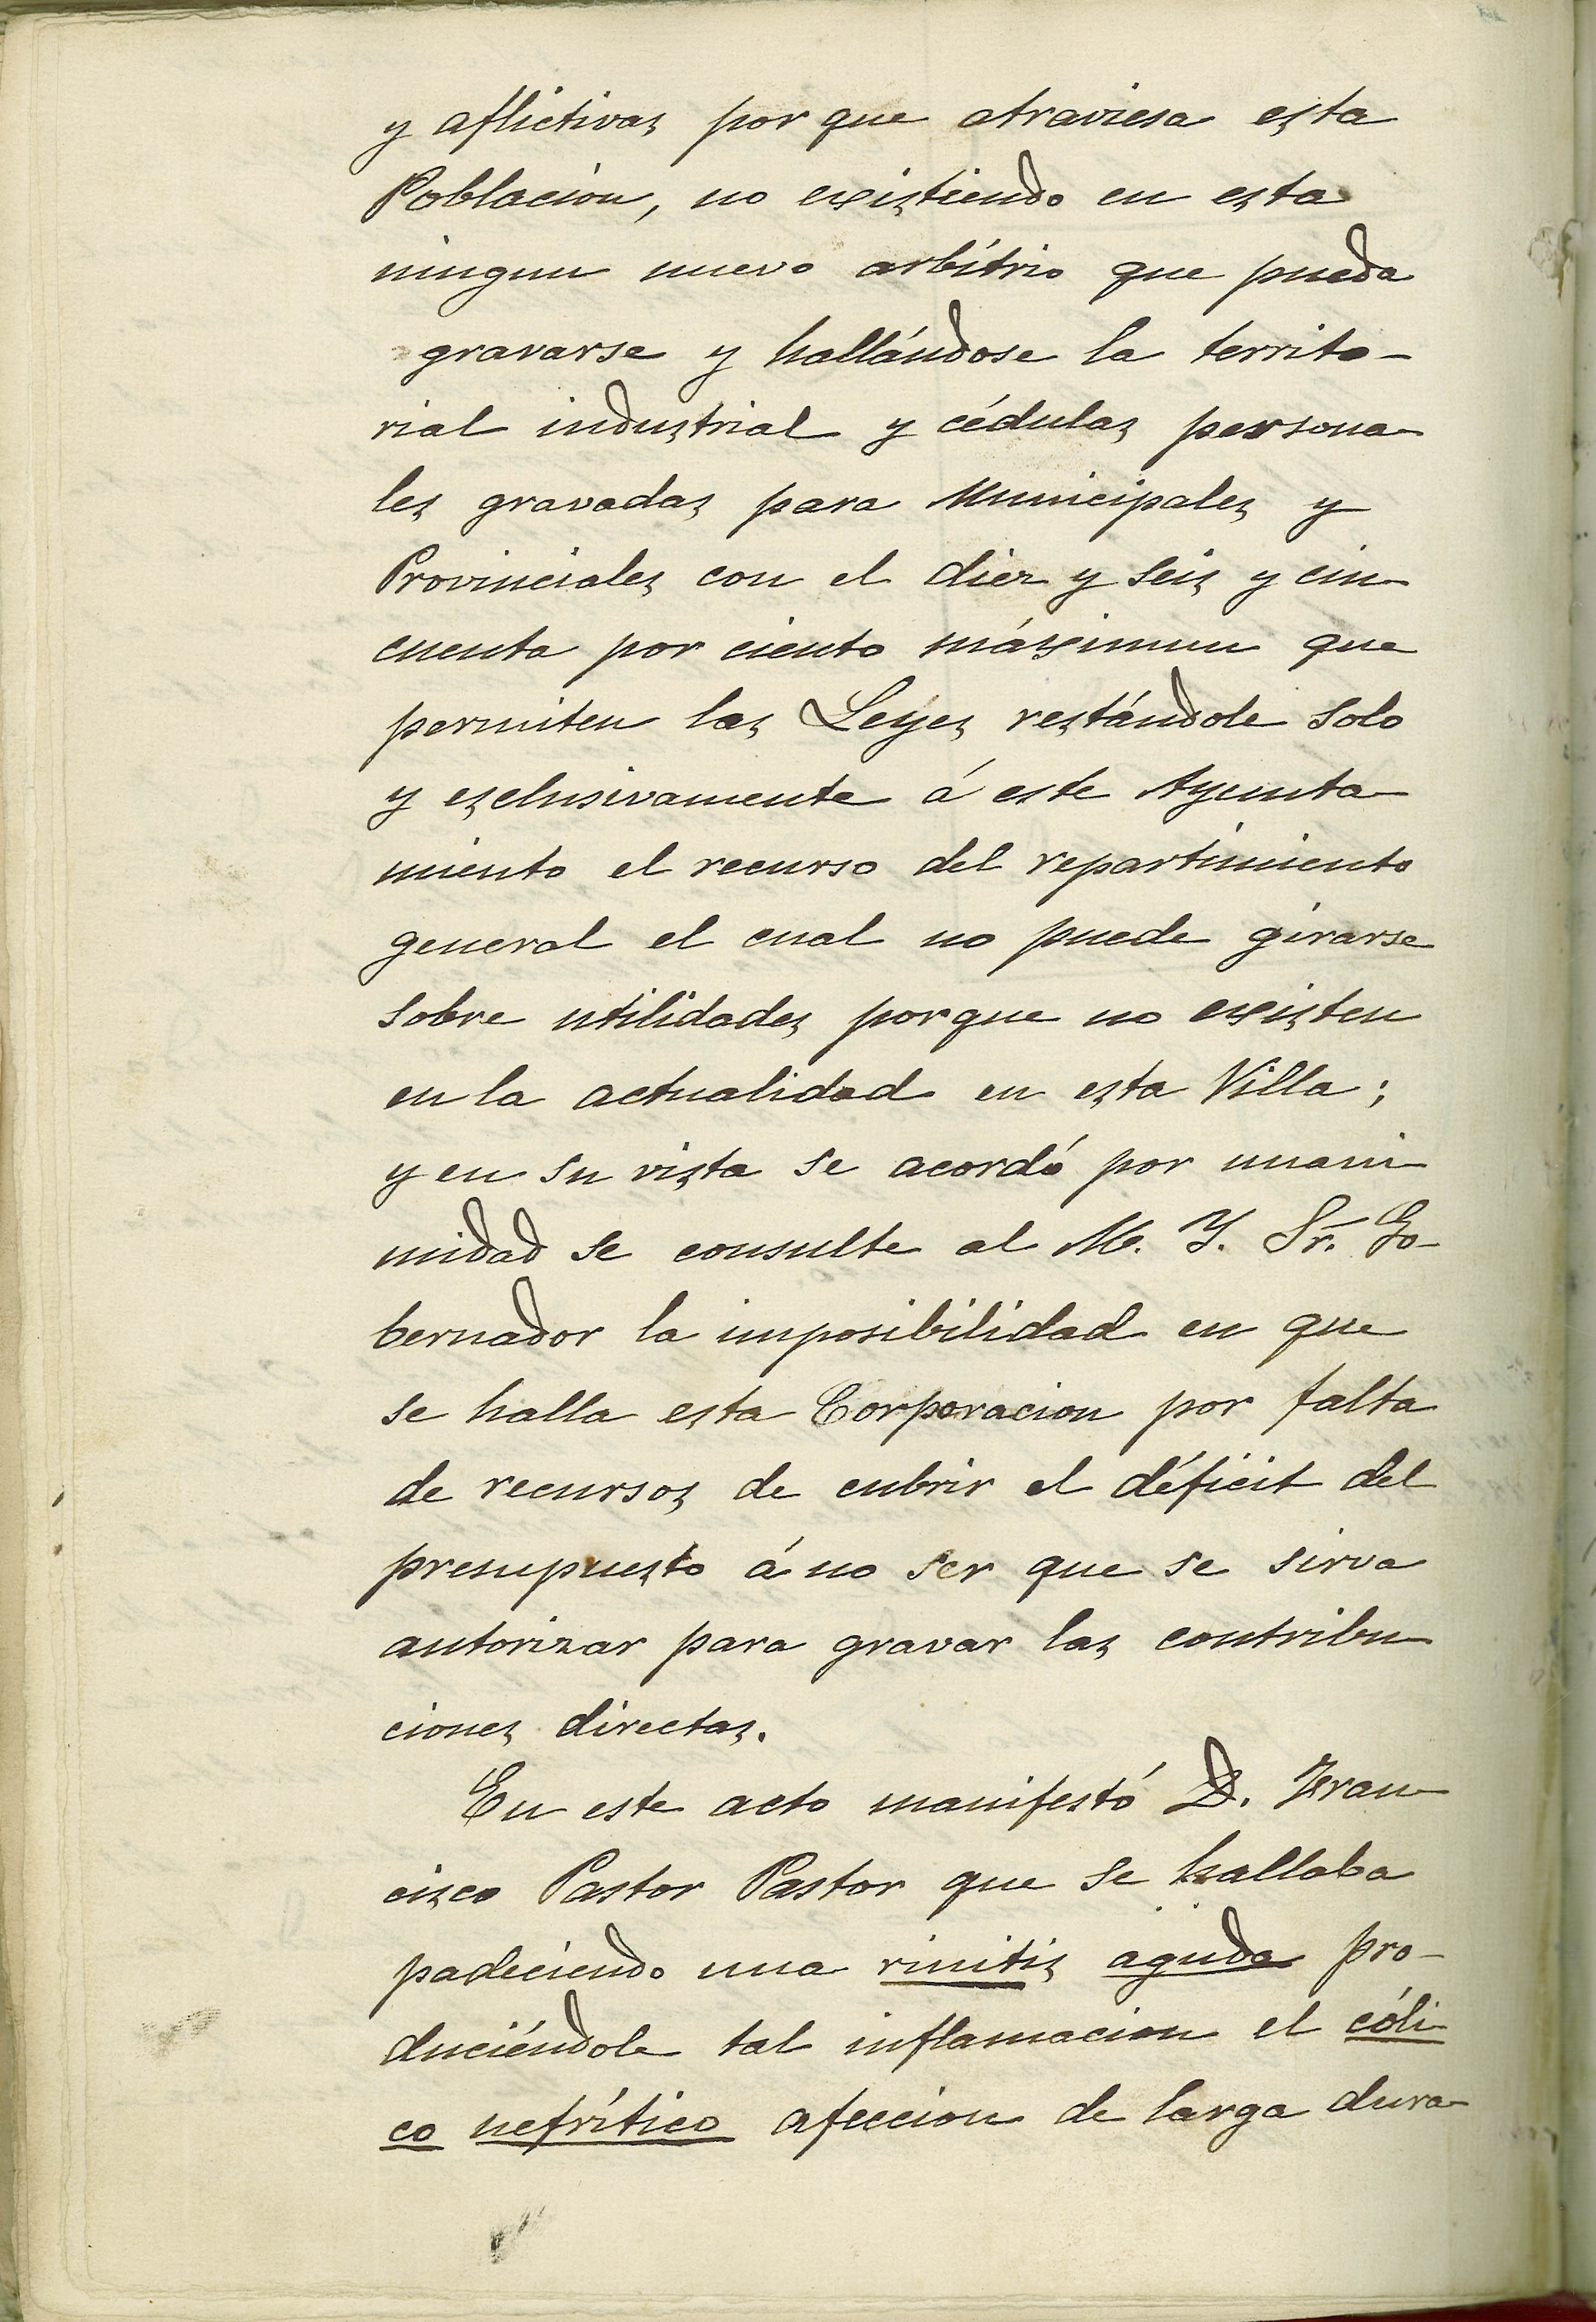 y aflictivas por que atraviesa esta
Poblacion, no existiendo en esta
ningun nuevo arbítrio que pueda
gravarse y hallándose la territo-
rial industrial y cédulas persona-
les gravadas para Municipales y
Provinciales con el diez y seis y cin-
cuenta por ciento máximun que
permiten las Leyes restándole solo
y esclusivamente á este Ayunta-
miento el recurso del repartimiento
general el cual no puede girarse
sobre utilidades porque no existen
en la actualidad en esta Villa;
y en su vista se acordó por unani-
midad se consulte al M. Y. Sr. Go-
bernador la imposibilidad en que
se halla esta Corporacion por falta
de recursos de cubrir el déficit del
presupuesto á no ser que se sirva
autorizar para gravar las contribu-
ciones directas.
En este acto manifestó D. Fran-
cisco Pastor Pastor que se hallaba
padeciendo una rinitis aguda pro-
duciéndole tal inflamacion el cóli-
co nefrítico afeccion de larga dura-